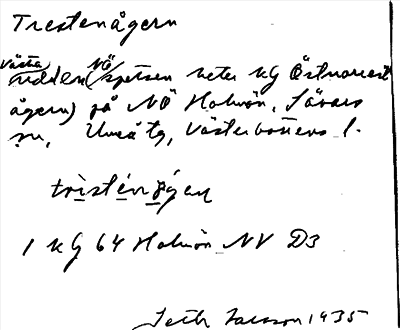 Trestenågern
Västra udden (NÖ spetsen heter kg Östnorrest
ågern) på NÖ Holmön, Sävars
sn, Umeå tg, Västerbottens l.
tristénågen
1 kg 64 Holmön NV D3
Seth Larsson 1935